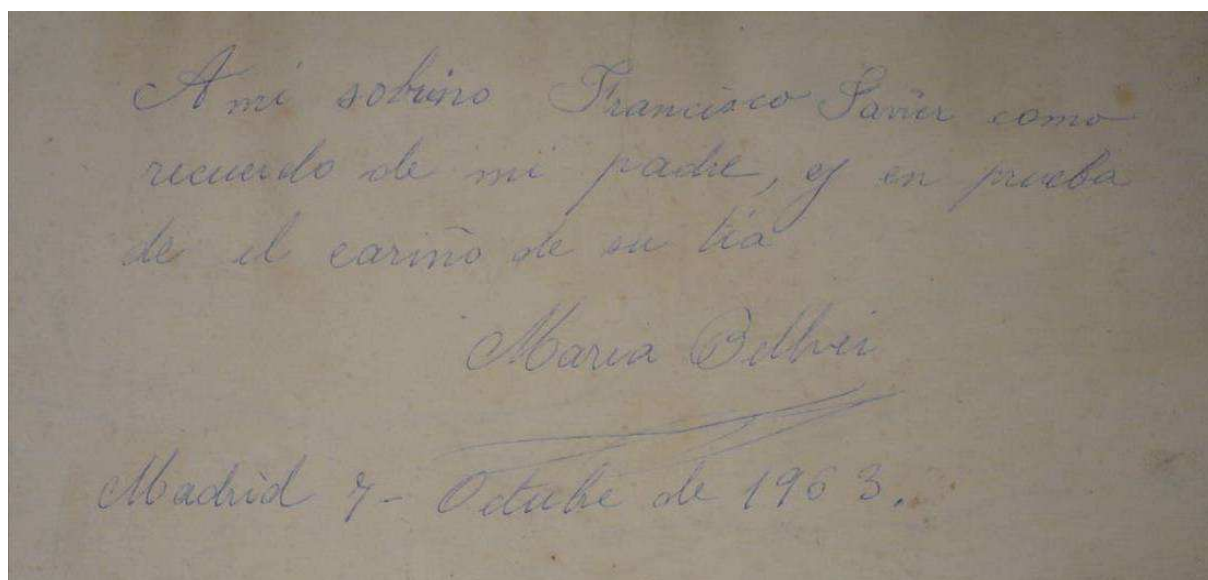 A mi sobrino Francisco Javier como
recuerdo de mi padre, y en prueba
de el cariño de su tía
Maria Bellver
Madrid 7- Octubre de 1963.